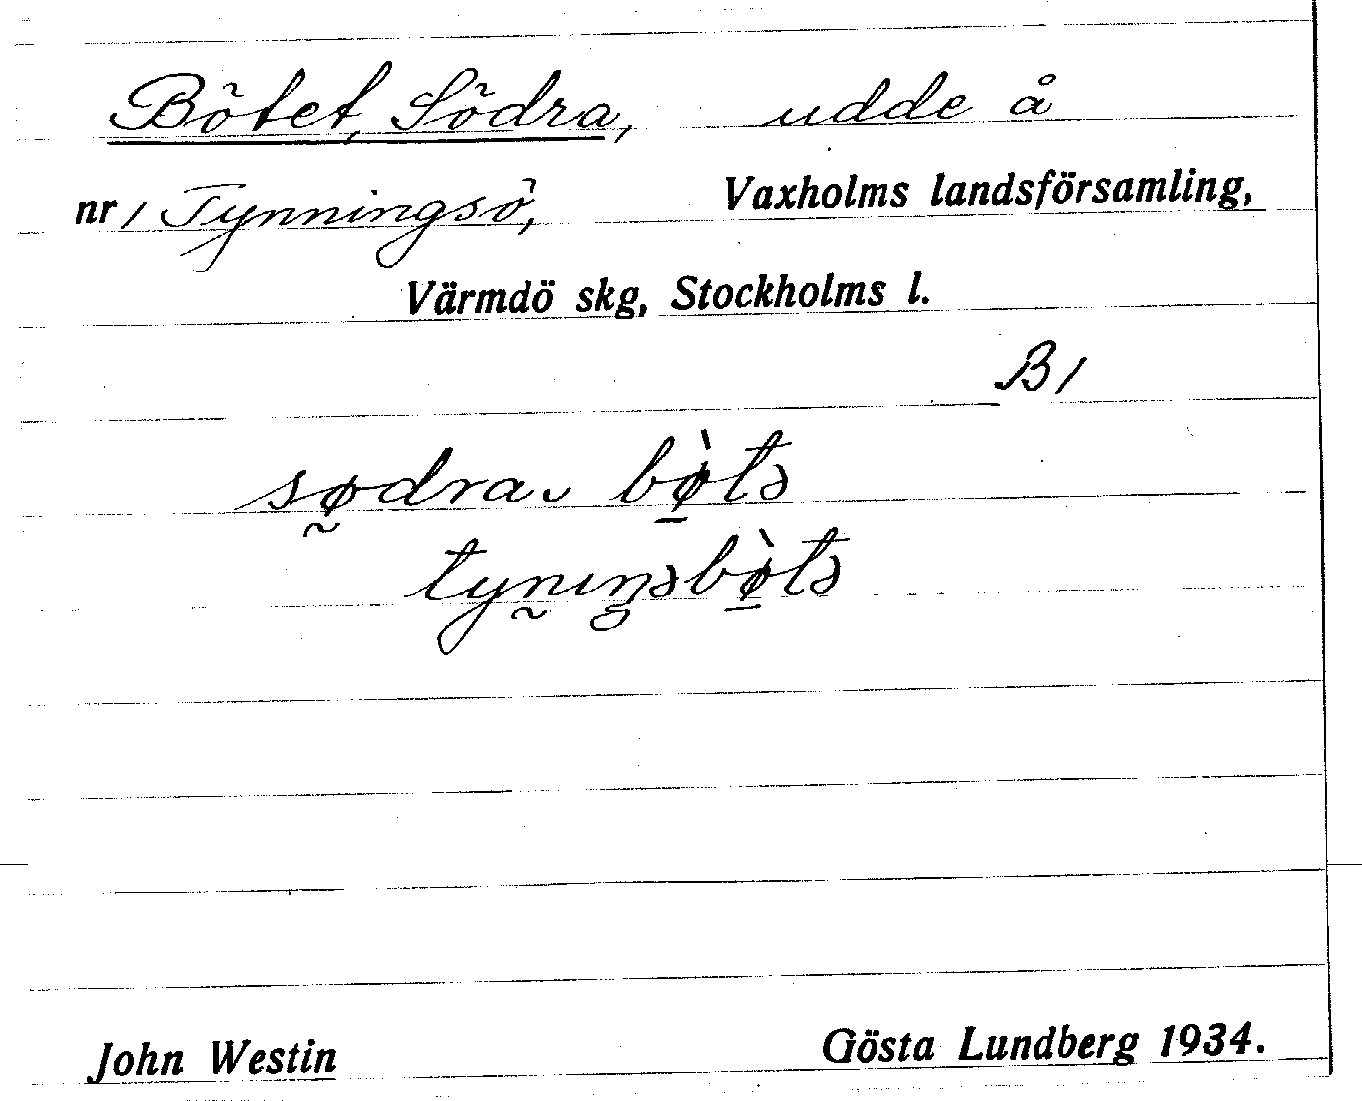 Bötet, Södra, udde å
nr 1 Tynningsö, Vaxholms landsförsamling,
Värmdö skg, Stockholms l.
B1
sø̰dra⌣ bø̠̀tə
tyn̰ıŋəbø̠̀tə
John Westin Gösta Lundberg 1934.